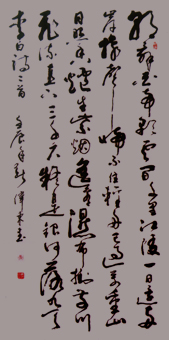 朝辭白帝彩雲間千里江陵一日還兩
岸猿聲啼不住輕舟已過萬重山
日照香爐生紫煙遙看瀑布掛前川
飛流直下三千尺疑是銀河落九天
李白詩二首 壬辰年